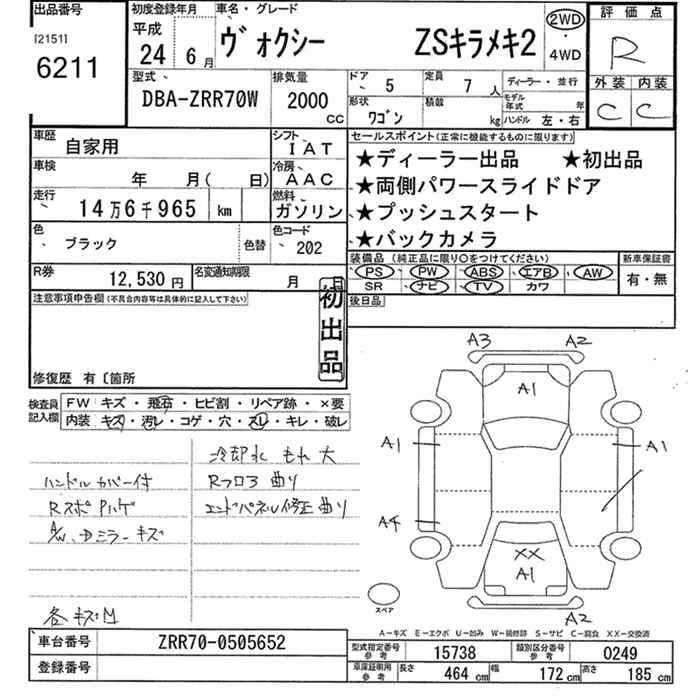 出品番号
[2151]
6211
初度登録年月
平成
24 6月
車名・グレード
ヴォクシー ZSキラメキ2
2WD
・
4WD
評価点
R
外装 内装
C C
型式
DBA-ZRR70W
排気量
2000
CC
ドア 5
定員 7 人
ディーラー・並行
形状 ワゴン
積載 kg
モデル年式 年
ハンドル 左・右
車歴 自家用
シフト IAT
車検 年 月( 日)
冷房 AAC
走行 14万6千965 km
燃料 ガソリン
色 ブラック 色替
色コード 202
R券 12,530円
名変通知期限 月 日
セールスポイント(正常に機能するものに限ります)
★ディーラー出品 ★初出品
★両側パワースライドドア
★プッシュスタート
★バックカメラ
装備品(純正品に限り〇をつけてください)
PS PW ABS エアB AW
SR ナビ TV カワ
新車保証書
有・無
注意事項申告欄(不具合内容等は具体的に記入して下さい)
初出品
後日品
修復歴 有〔箇所
検査員記入欄
FW キズ・飛石・ヒビ割・リペア跡・×要
内装 キズ・汚レ・コゲ・穴・スレ・キレ・破レ
冷却水 もれ 大
ハンドルカバー付
Rフロア 曲り
RスポPハゲ
エンドパネル修正曲り
A/W、Dミラーキズ
各キズ凹
A3 A2
A1
A1 A1
A4
XX
A1
A2
スペア
A-キズ E-エクボ U-凹み W-補修跡 S-サビ C-腐食 XX-交換済
車台番号 ZRR70-0505652
登録番号
型式指定番号 参考 15738
類別区分番号 参考 0249
車庫証明用 参考
長さ 464 cm
幅 172 cm
高さ 185 cm